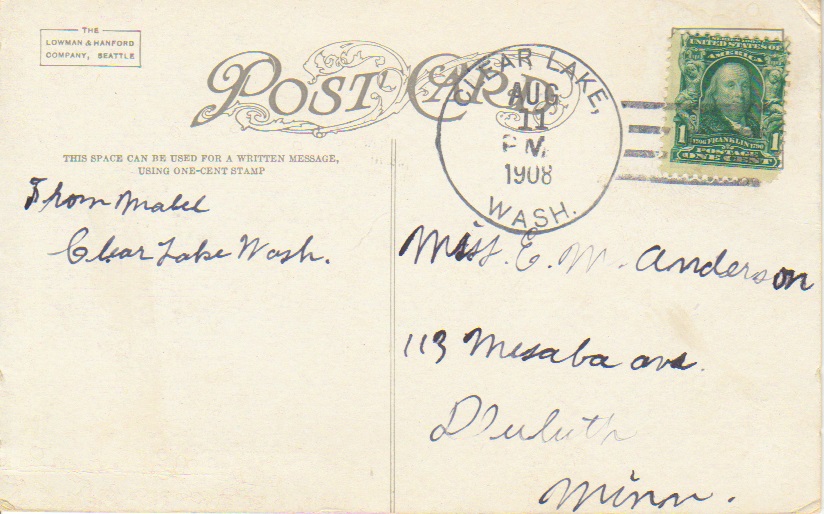 THE
LOWMAN & HANFORD
COMPANY, SEATTLE
POST CARD
CLEAR LAKE,
AUG
11
PM
1908
WASH.
UNITED STATES OF
AMERICA
1 1
1706 FRANKLIN 1790
POSTAGE
ONE CENT
THIS SPACE CAN BE USED FOR A WRITTEN MESSAGE,
USING ONE-CENT STAMP
From Mabel
Clear Lake Wash.
Miss. E. M. Anderson
113 Mesaba ave.
Duluth
Minn.